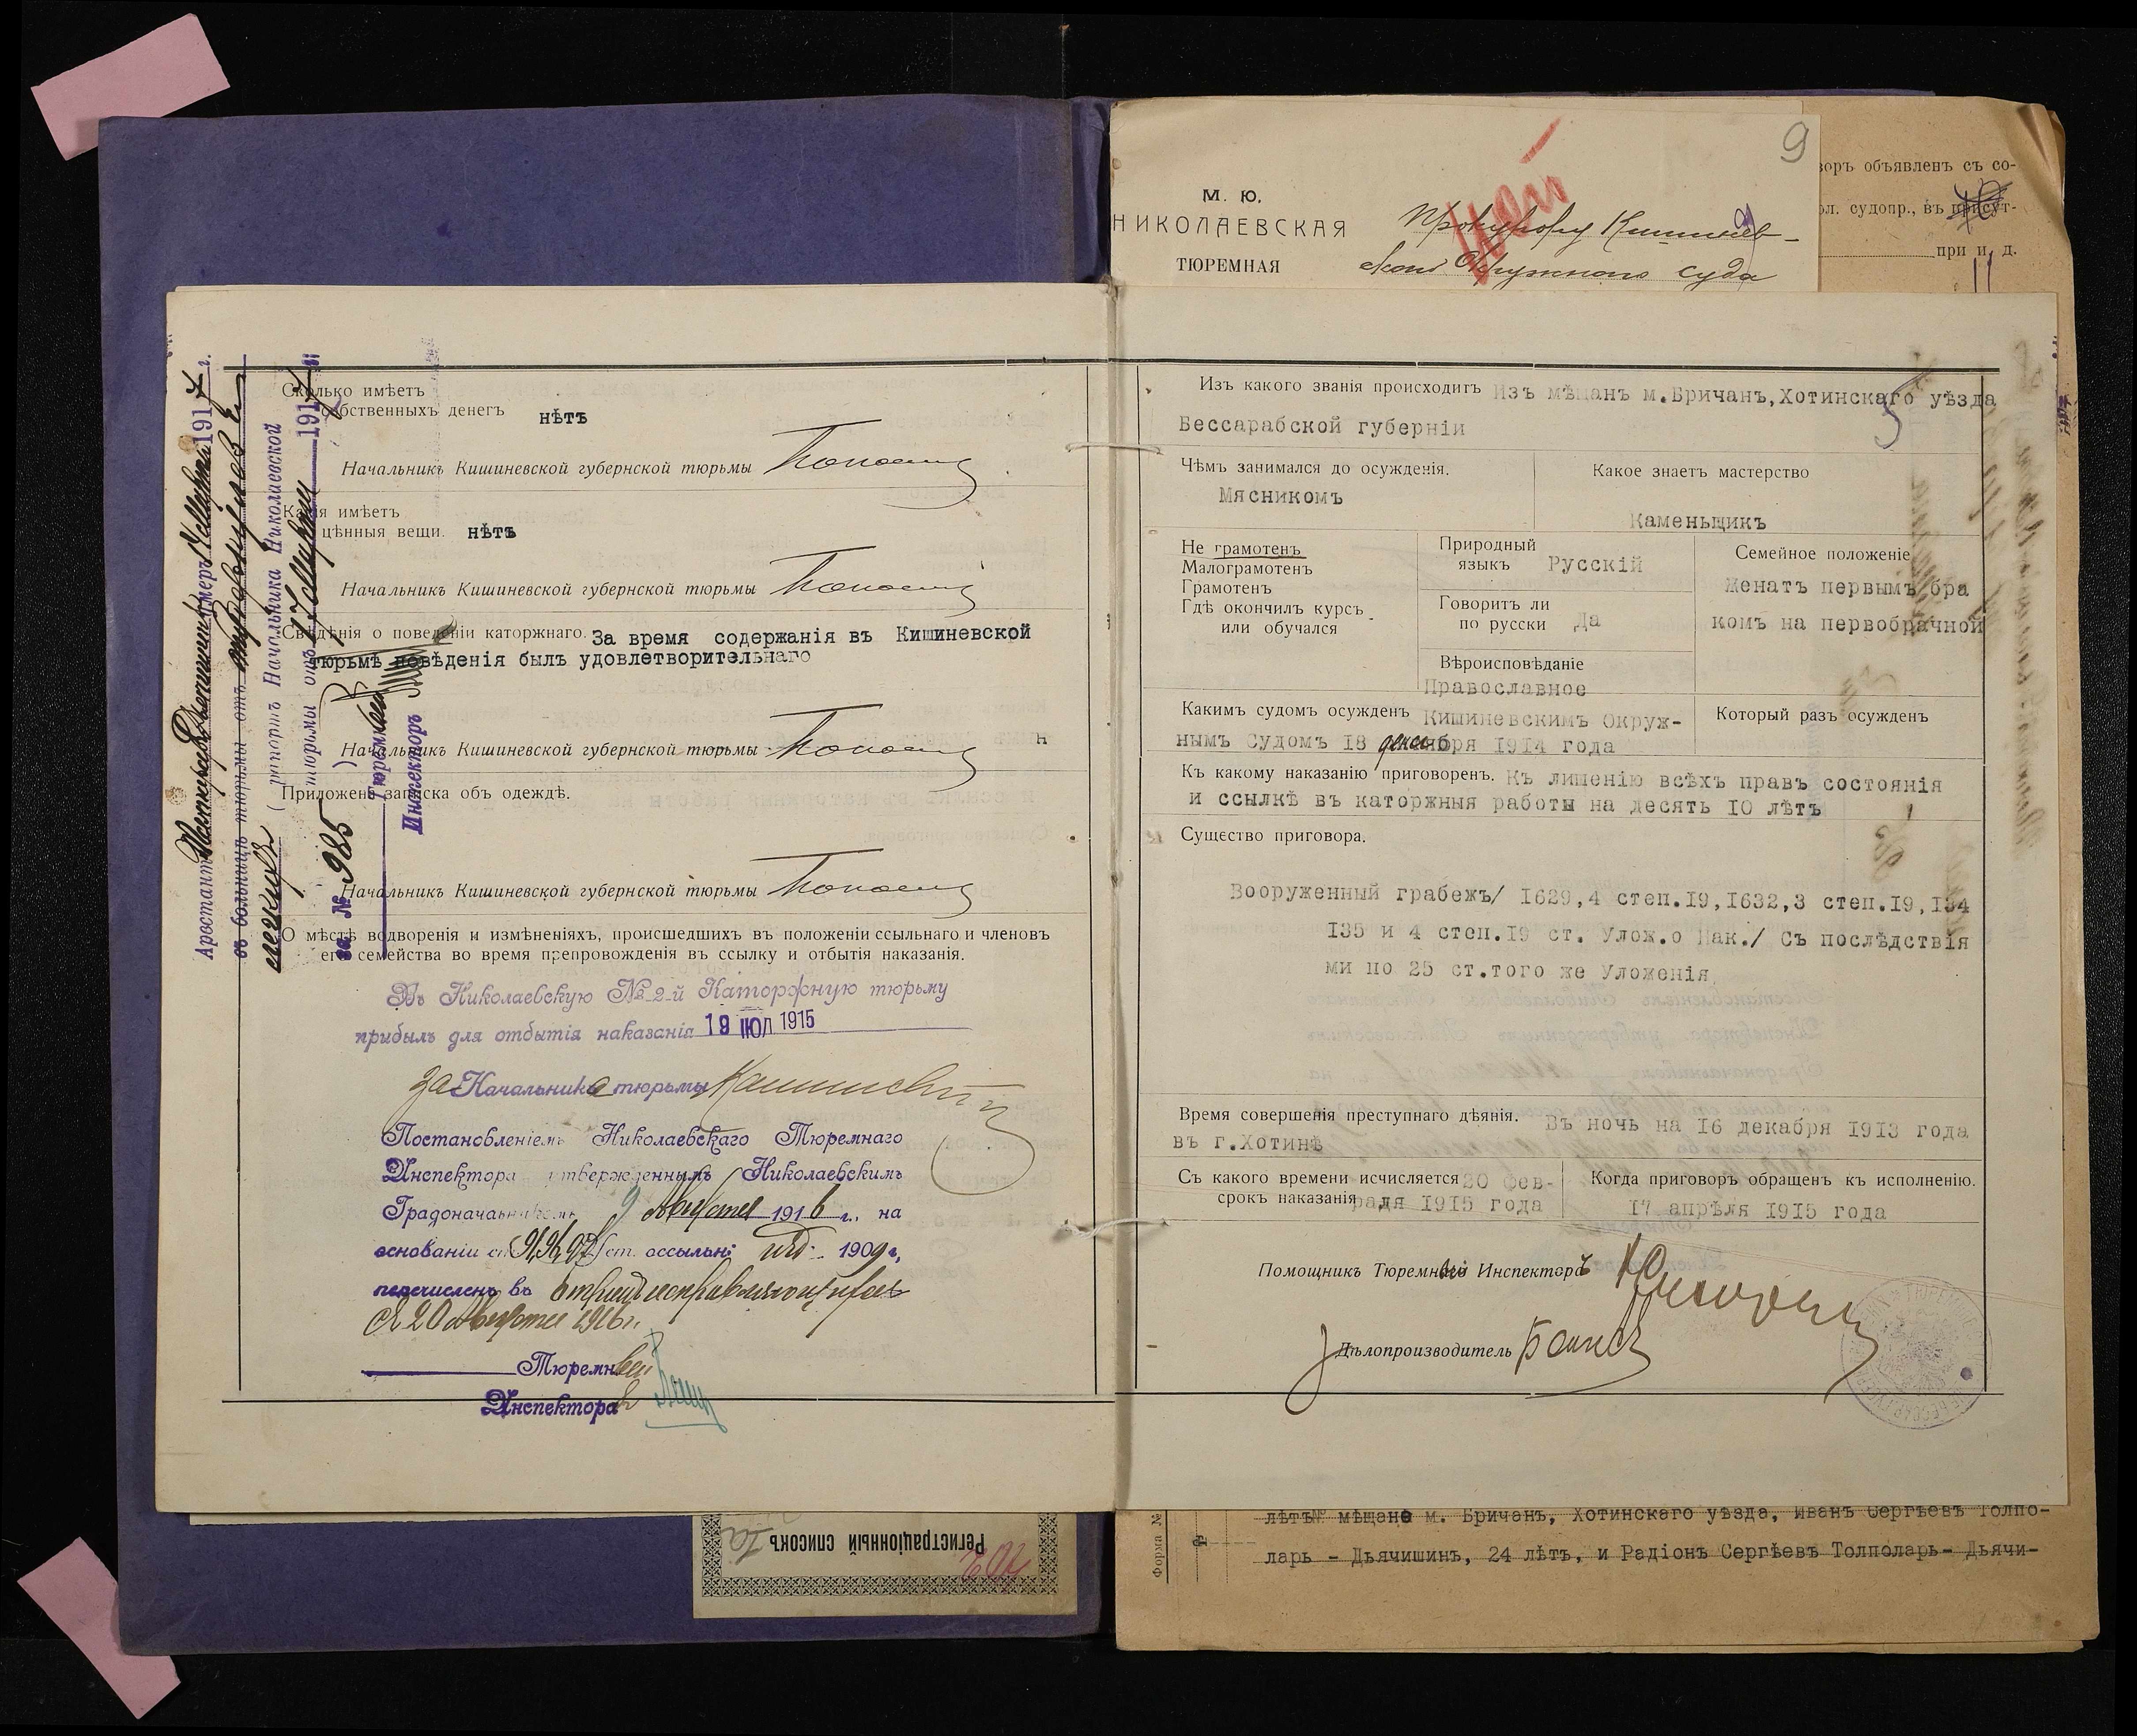 9
М. Ю.
НИКОЛАЕВСКАЯ
ТЮРЕМНАЯ
Прокурору Кишинев-
скаго Окружнаго суда
воръ объявленъ съ со-
ол. судопр., въ присут-
при и. д.
Сколько имѣетъ
собственныхъ денегъ нѣтъ
Начальникъ Кишиневской губернской тюрьмы
Какія имѣетъ
цѣнныя вещи. нѣтъ
Начальникъ Кишиневской губернской тюрьмы
Свѣдѣнія о поведеніи каторжнаго. За время содержанія въ Кишиневской
тюрьмѣ поведенія былъ удовлетворительнаго
Начальникъ Кишиневской губернской тюрьмы
Приложена записка объ одеждѣ.
Начальникъ Кишиневской губернской тюрьмы
О мѣстѣ водворенія и измѣненіяхъ, происшедшихъ въ положеніи ссыльнаго и членовъ
его семейства во время препровожденія въ ссылку и отбытія наказанія.
Въ Николаевскую № 2-й Каторжную тюрьму
прибылъ для отбытія наказанія 19 ІЮЛ 1915
За Начальника тюрьмы
Постановленіемъ Николаевскаго Тюремнаго
Инспектора утвержденнымъ Николаевскимъ
Градоначальникомъ 9 Августа 1916 г., на
основаніи ст. ст. о ссыльн: изд. 1909 г.,
перечисленъ въ отрядъ исправляющихся
съ 20 Августа 1916 г.
Тюремный
Инспекторъ
Арестантъ умеръ 1917 г.
въ больницѣ тюрьмы отъ
(рапортъ Начальника Николаевской
тюрьмы отъ 1917
за № 985 )
Тюремный
Инспекторъ
Изъ какого званія происходитъ Изъ мѣщанъ м.Бричанъ,Хотинскаго уѣзда
Бессарабской губерніи
5
Чѣмъ занимался до осужденія.
Мясникомъ
Какое знаетъ мастерство
Каменьщикъ
Не грамотенъ
Малограмотенъ
Грамотенъ
Гдѣ окончилъ курсъ
или обучался
Природный
языкъ Русскій
Говоритъ ли
по русски Да
Вѣроисповѣданіе
Православное
Семейное положеніе
Женатъ первымъ бра
комъ на первобрачной
Какимъ судомъ осужденъ Кишиневскимъ Окруж-
нымъ Судомъ 18 декабря 1914 года
Который разъ осужденъ
Къ какому наказанію приговоренъ. Къ лишенію всѣхъ правъ состоянія
и ссылкѣ въ каторжныя работы на десять 10 лѣтъ
Существо приговора.
Вооруженный грабежъ/ 1629,4 степ.19,1632,3 степ.19,134
135 и 4 степ.19 ст. Улож.о Нак./ Съ послѣдствія
ми по 25 ст.того же Уложенія
Время совершенія преступнаго дѣянія. Въ ночь на 16 декабря 1913 года
въ г.Хотинѣ
Съ какого времени исчисляется 20 фев-
срокъ наказанія раля 1915 года
Когда приговоръ обращенъ къ исполненію.
17 апрѣля 1915 года
Помощникъ Тюремнаго Инспектора
Дѣлопроизводитель
Регистраціонный списокъ
Форма №
лѣтъ мѣщане м. Бричанъ, Хотинскаго уѣзда, Иванъ Сергѣевъ Толпо-
ларь - Дьячишинъ, 24 лѣтъ, и Радіонъ Сергѣевъ Толполарь- Дьячи-